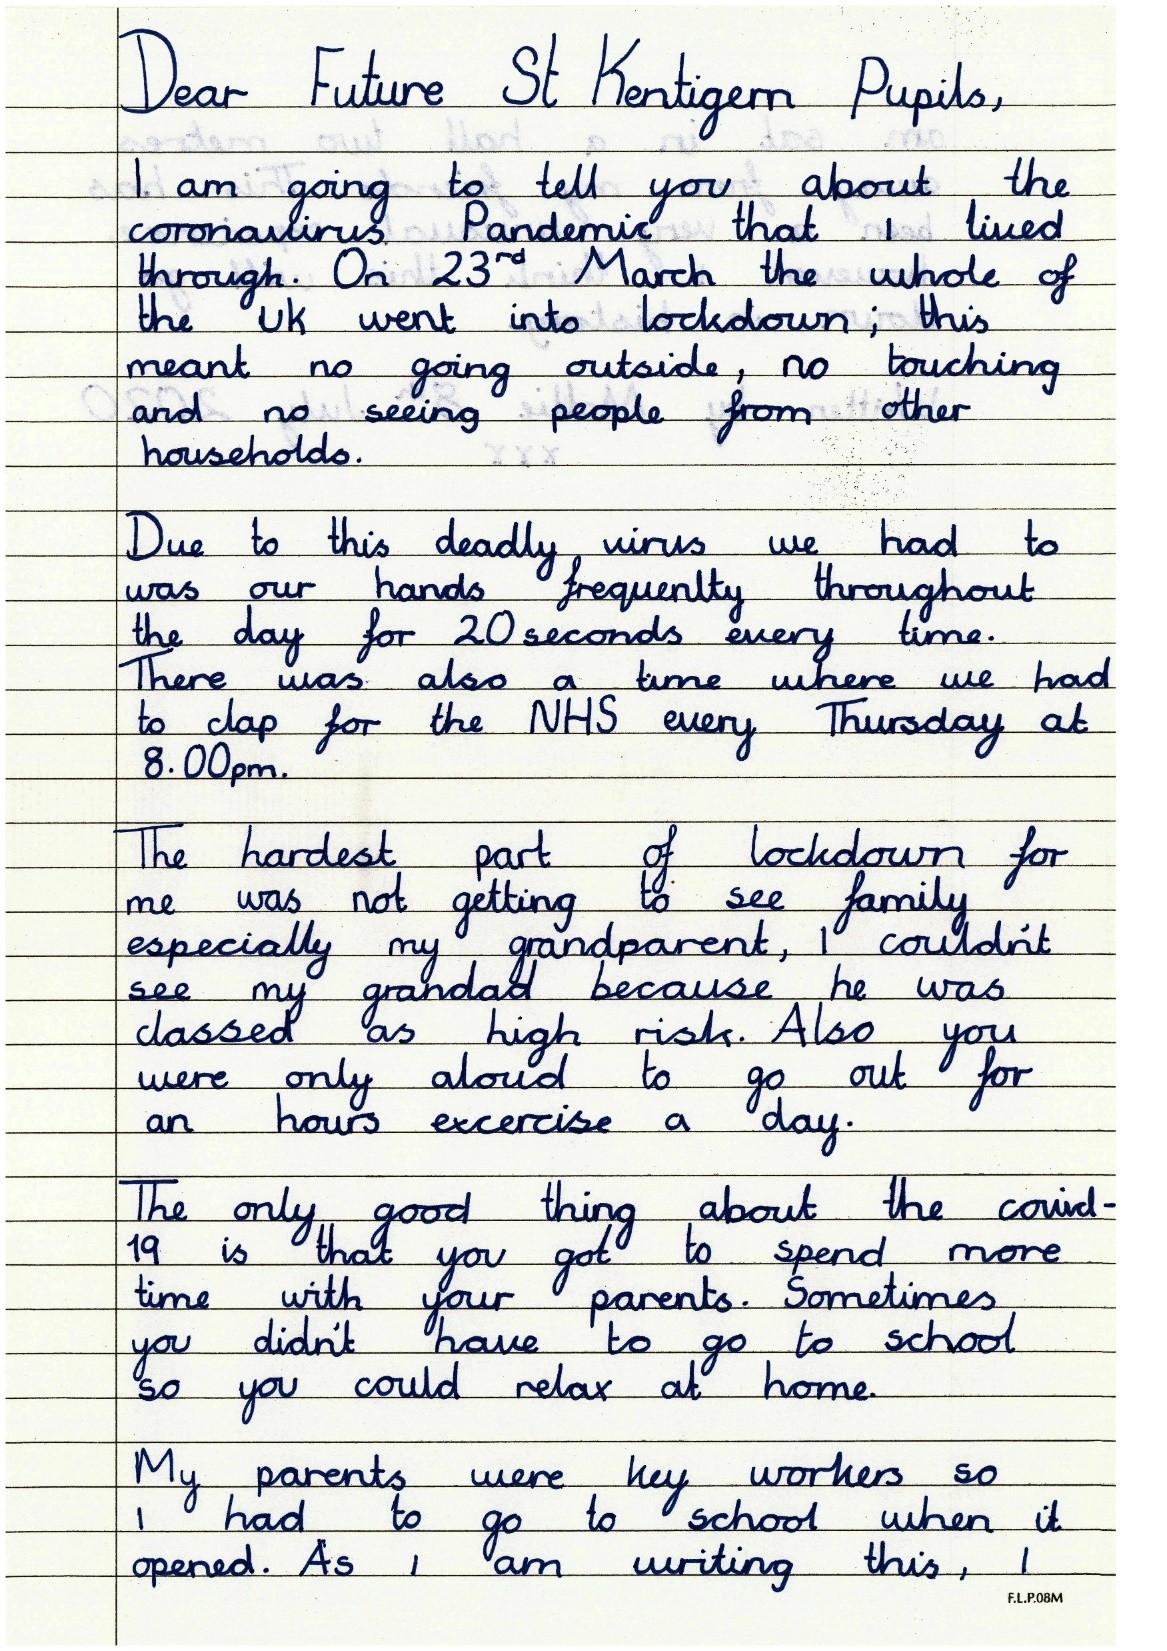 Dear Future St Kentigern Pupils,
I am going to tell you about the
coronavirus Pandemic that I lived
through. On 23rd March the whole of
the UK went into lockdown; this
meant no going outside, no touching
and no seeing people from other
households.
Due to this deadly virus we had to
was our hands frequenlty throughout
the day for 20 seconds every time.
There was also a time where we had
to clap for the NHS every Thursday at
8.00pm.
The hardest part of lockdown for
me was not getting to see family
especially my grandparent, I couldn't
see my grandad because he was
classed as high risk. Also you
were only aloud to go out for
an hours excercise a day.
The only good thing about the covid-
19 is that you got to spend more
time with your parents. Sometimes
you didn't have to go to school
so you could relax at home.
My parents were key workers so
I had to go to school when it
opened. As I am writing this, I
F.L.P.08M